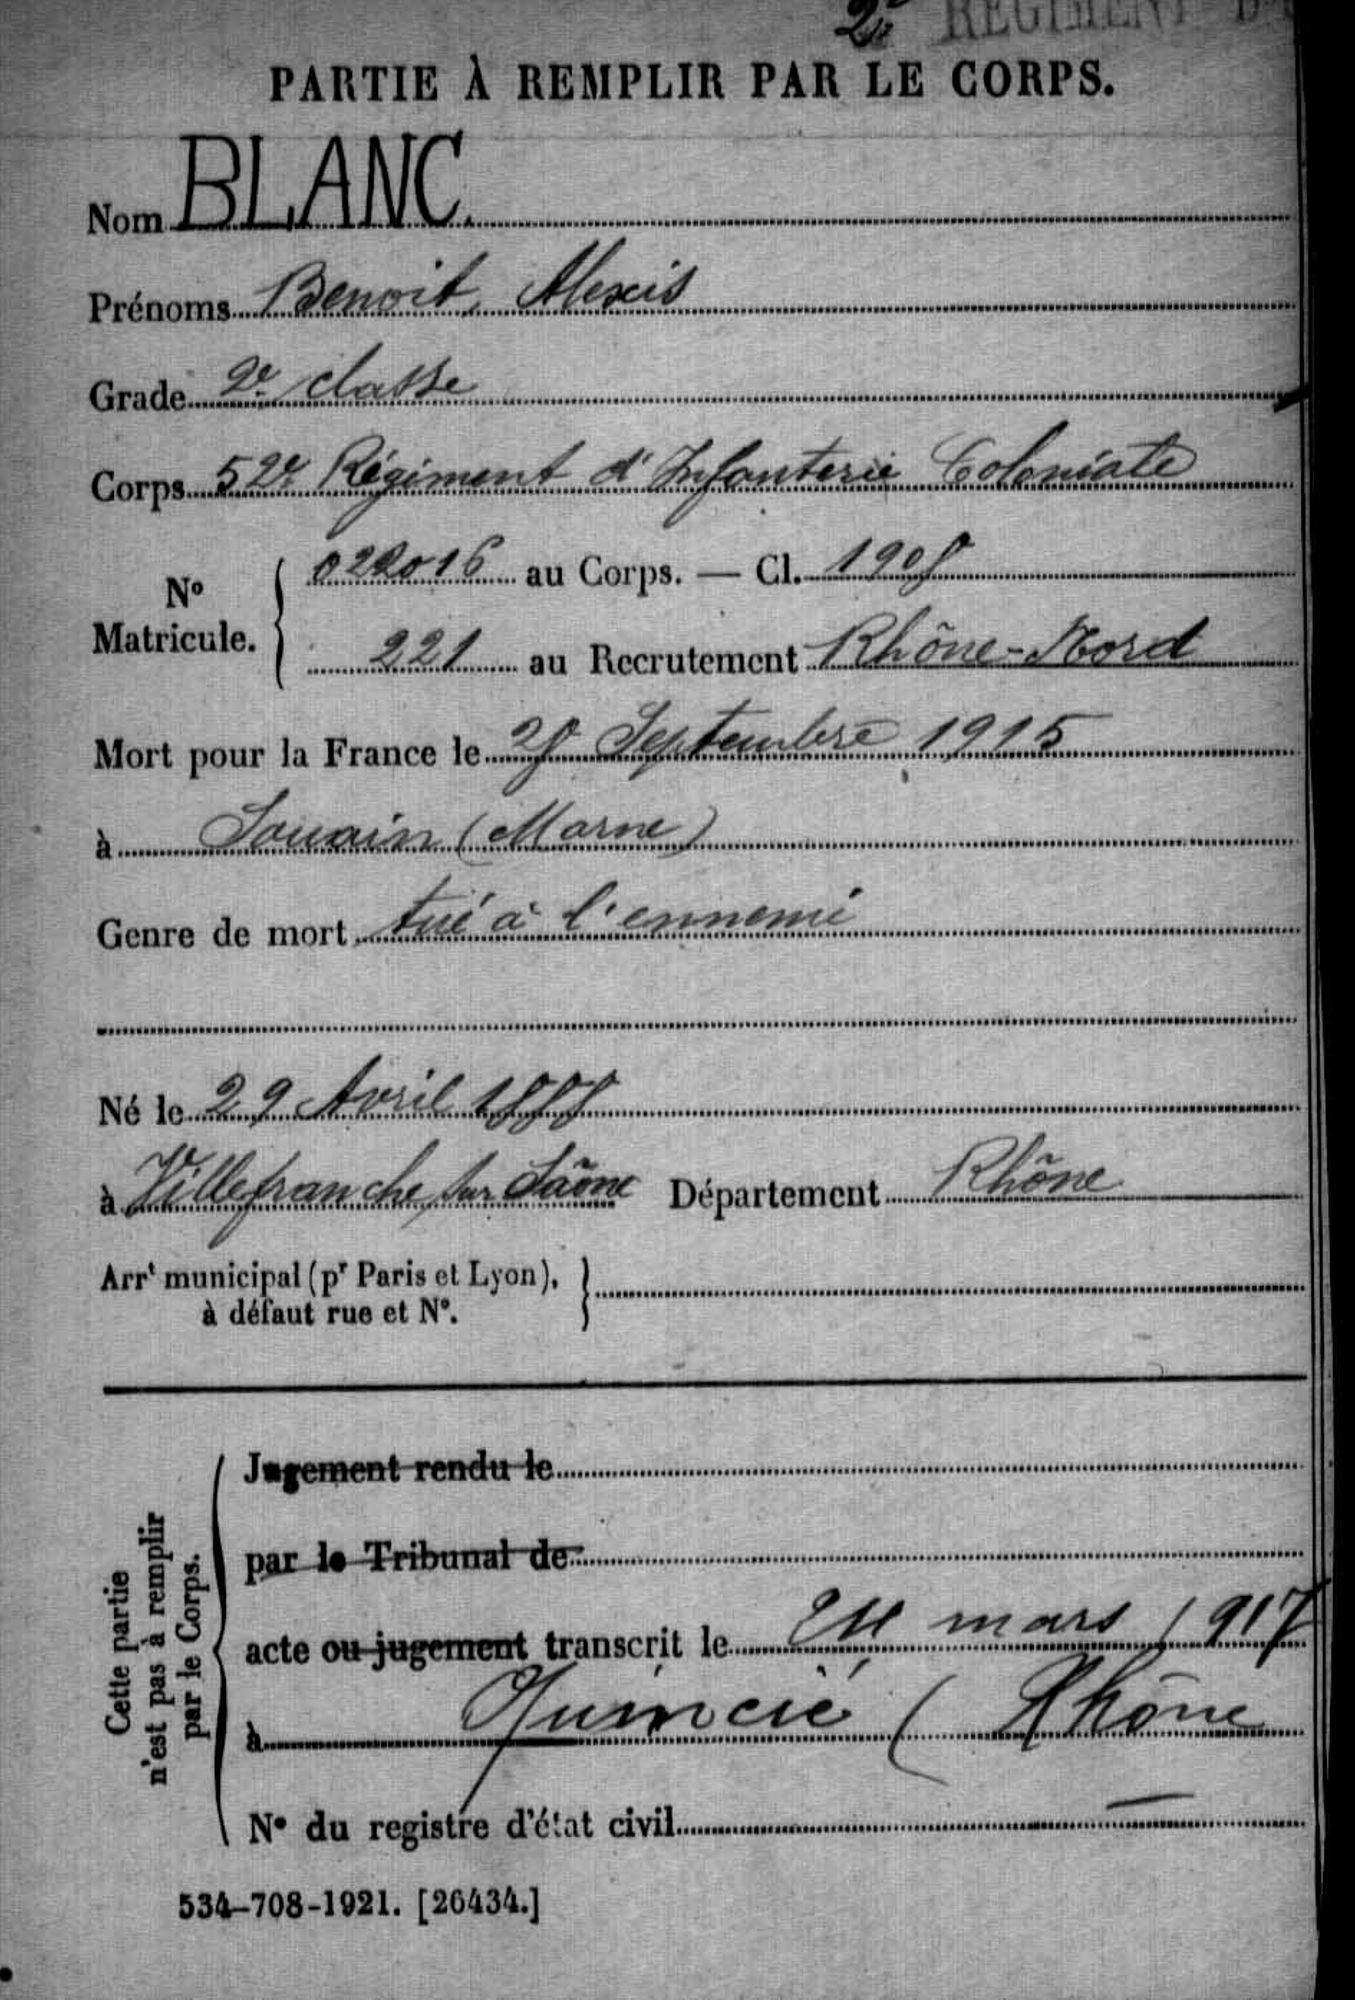 2e RÉGIMENT D'I
PARTIE À REMPLIR PAR LE CORPS.
Nom BLANC.
Prénoms Benoit, Alexis
Grade 2e classe
Corps 52e Régiment d'Infanterie Coloniale
No Matricule. { 022016 au Corps. — Cl. 1908
221 au Recrutement Rhône-Nord
Mort pour la France le 28 Septembre 1915
à Souain (Marne)
Genre de mort tué à l'ennemi
Né le 29 Avril 1888
à Villefranche sur Saône Département Rhône
Arrt municipal (pr Paris et Lyon), }
à défaut rue et No.
Cette partie
n'est pas à remplir
par le Corps.
Jugement rendu le
par le Tribunal de
acte ou jugement transcrit le 24 mars 1917
à Quincié (Rhône
No du registre d'état civil —
534-708-1921. [26434.]